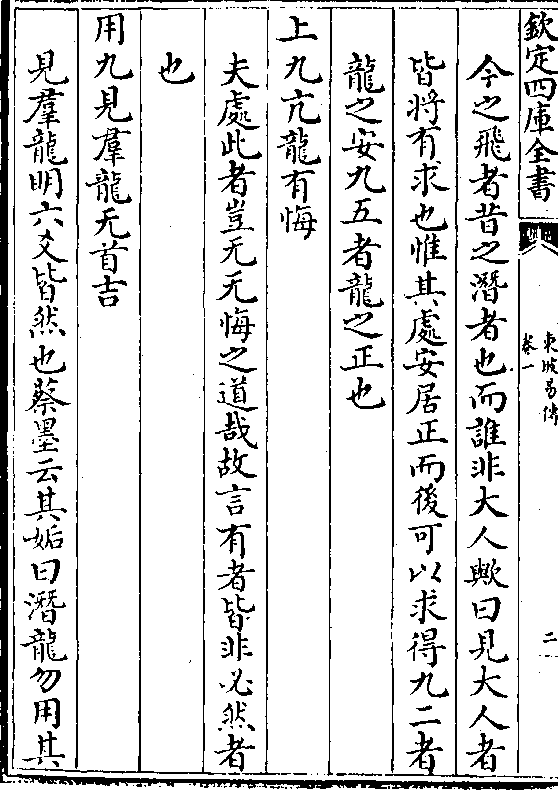 欽定四庫全書
東坡易傳
卷一
二
今之飛者昔之潛者也而誰非大人歟曰見大人者
皆將有求也惟其處安居正而後可以求得九二者
龍之安九五者龍之正也
上九亢龍有悔
夫處此者豈无无悔之道哉故言有者皆非必然者
也
用九見羣龍无首吉
見羣龍明六爻皆然也蔡墨云其姤曰潛龍勿用其